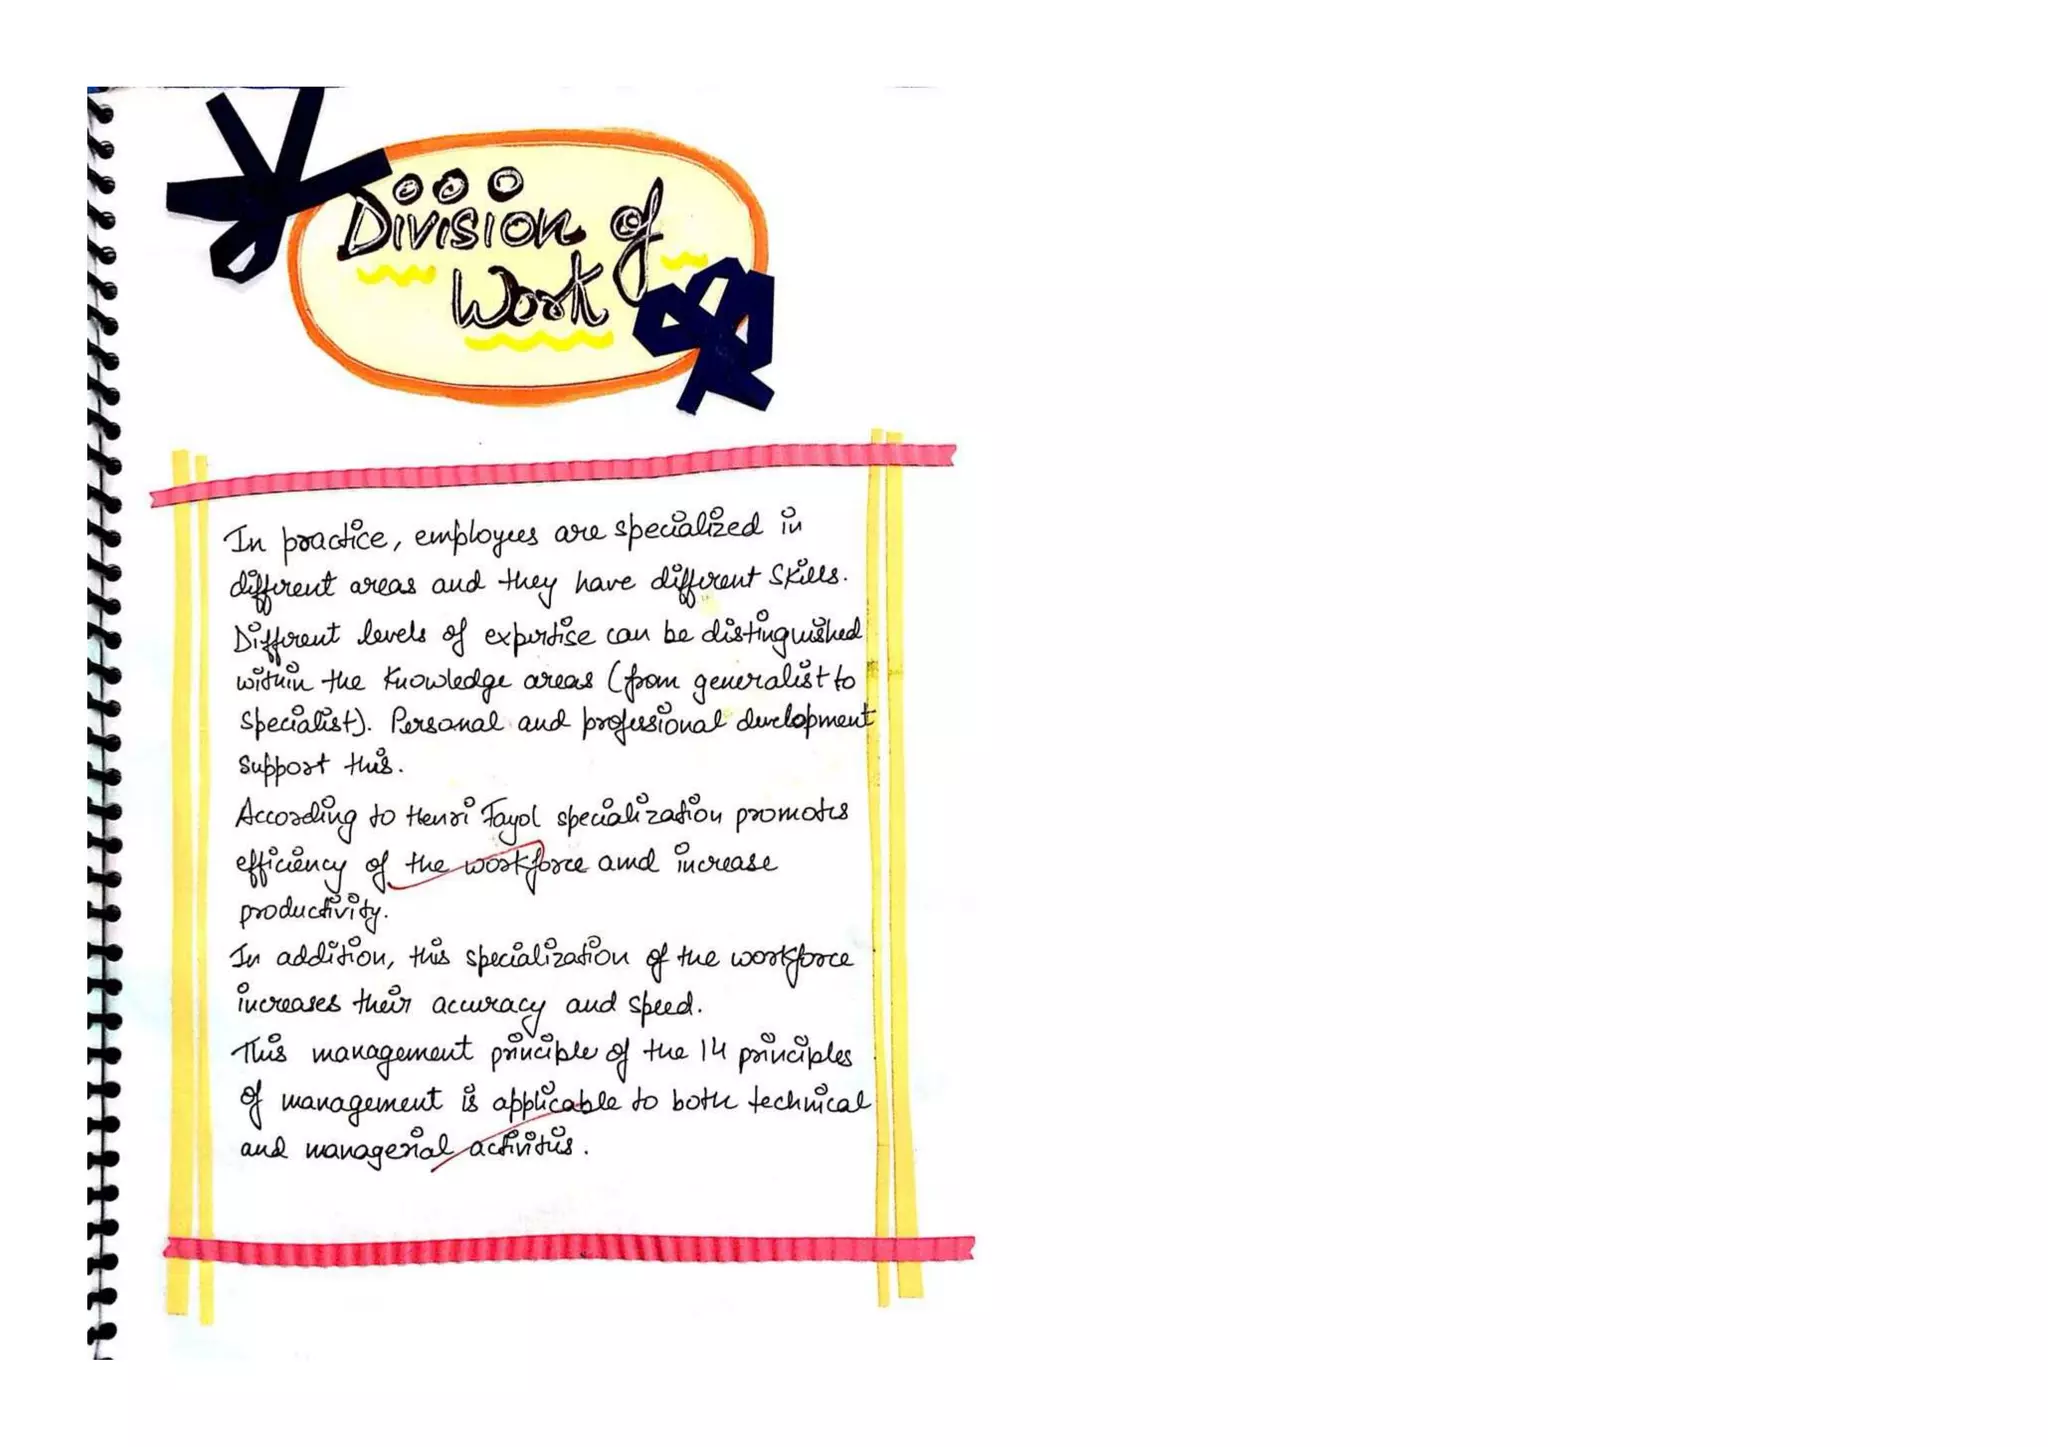 Division of
Work
In practice, employees are specialized in
different areas and they have different skills.
Different levels of expertise can be distinguished
within the knowledge areas (from generalist to
specialist). Personal and professional development
support this.
According to Henri Fayol specialization promotes
efficiency of the workforce amd increase
productivity.
In addition, this specialization of the workforce
increases their accuracy and speed.
This management principle of the 14 principles
of management is applicable to both technical
and managerial activities.